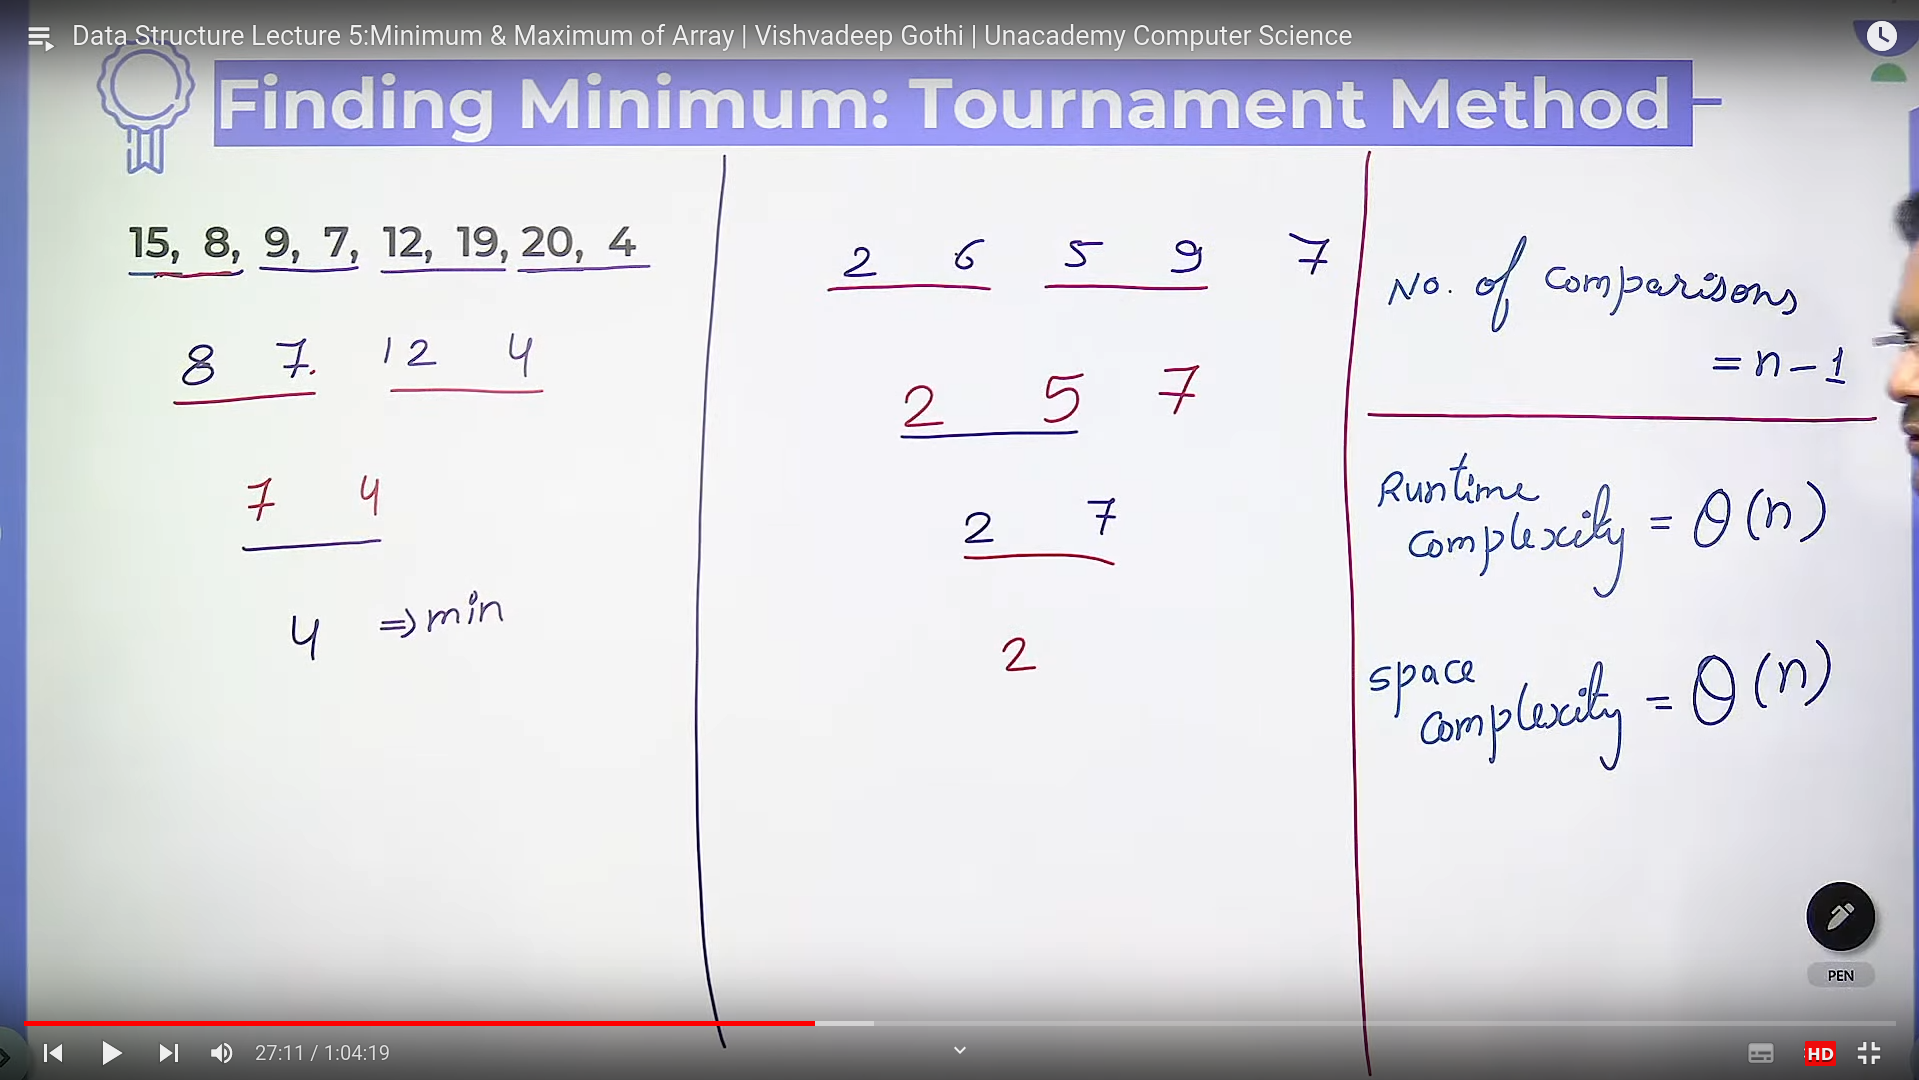 Data Structure Lecture 5:Minimum & Maximum of Array | Vishvadeep Gothi | Unacademy Computer Science
Finding Minimum: Tournament Method
15, 8, 9, 7, 12, 19, 20, 4
8 7. 12 4
7 4
4 ⇒ min
2 6 5 9 7
2 5 7
2 7
2
No. of comparisons
= n - 1
Runtime
complexity = θ(n)
space
complexity = θ(n)
PEN
27:11 / 1:04:19
HD